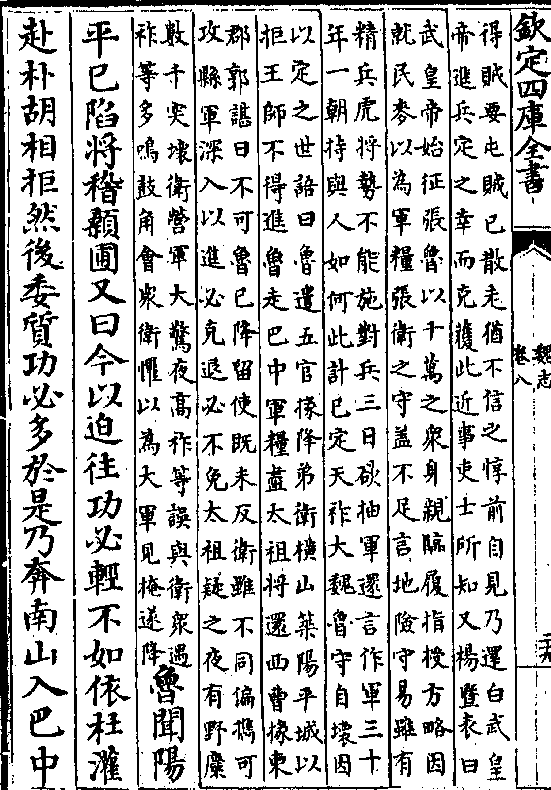 欽定四庫全書
魏志
卷八
得賊要屯賊已散走猶不信之惇前自見乃還白武皇
帝進兵定之幸而克獲此近事吏士所知又楊暨表曰
武皇帝始征張魯以十萬之衆身親臨履指授方略因
就民麥以為軍糧張衛之守蓋不足言地險守易雖有
精兵虎將勢不能施對兵三日欲抽軍還言作軍三十
年一朝持與人如何此計已定天祚大魏魯守自壞因
以定之世語曰魯遣五官掾降弟衛橫山築陽平城以
拒王師不得進魯走巴中軍糧盡太祖將還西曹掾東
郡郭諶曰不可魯已降留使既未反衛雖不同偏攜可
攻縣軍深入以進必克退必不免太祖疑之夜有野麋
數千突壞衛營軍大驚夜高祚等誤與衛衆遇
祚等多鳴鼓角會衆衛懼以為大軍見掩遂降
魯聞陽
平已陷將稽顙圃又曰今以迫往功必輕不如依杜濩
赴朴胡相拒然後委質功必多於是乃奔南山入巴中